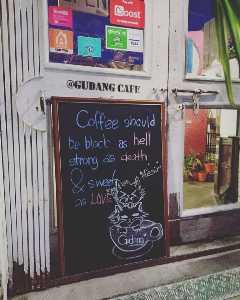 Boost
@GUDANG CAFE
Coffee should
be black as hell
strong as death
& sweet
as LOVE
Gudang